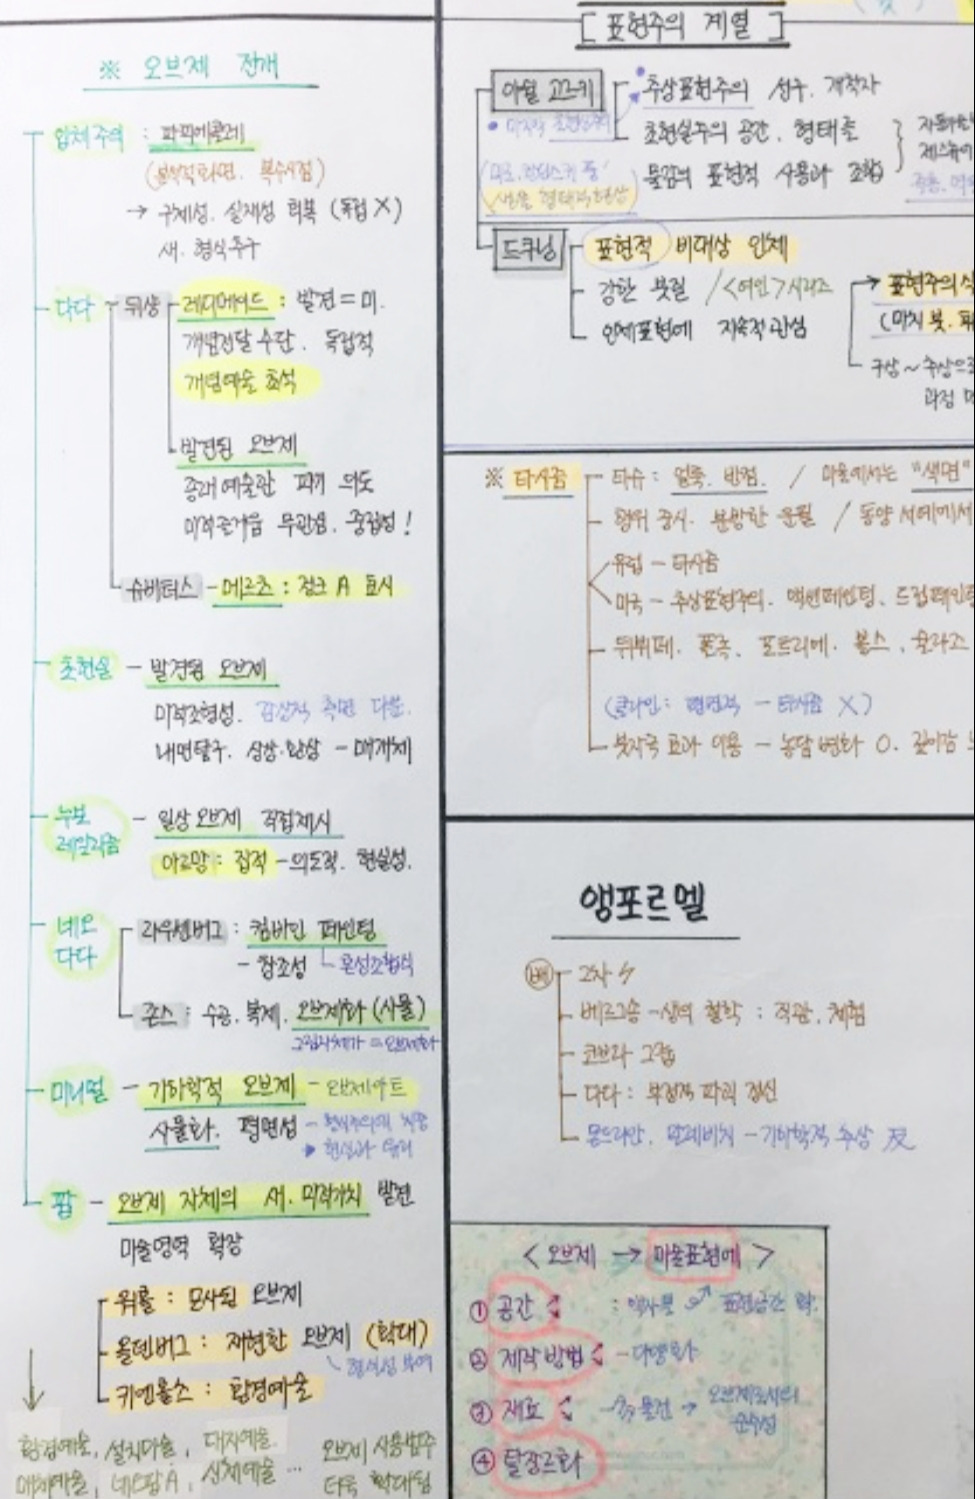 ※ 오브제 전개
입체주의 : 파피에콜레
(분석적화면. 복수시점)
→ 구체성. 실재성 회복 (독립 X)
새. 형식추구
다다 뒤샹 레디메이드 : 발견 = 미.
개념전달 수단. 독립적
개념예술 초석
발견된 오브제
종래 예술관 파기 의도
미적즐거움 무관심. 중점성!
슈비터스 - 메르츠 : 정크 A 효시
초현실 - 발견된 오브제
미적조형성. 감상적 측면 다분.
내면탐구. 상상·환상 - 매개체
누보
레알리즘
- 일상오브제 직접제시
아르망 : 집적 - 의도적. 현실성.
네오
다다
라우센버그 : 컴바인 페인팅
- 창조성 혼성조합식
존스 : 수공. 복제. 오브제화 (사물)
그림자체가 = 오브제화
미니멀 - 기하학적 오브제 - 오브제아트
사물화. 평면성
팝 - 오브제 자체의 새. 미적가치 발견
미술영역 확장
워홀 : 묘사된 오브제
올덴버그 : 재현한 오브제 (확대)
키엔홀츠 : 환경예술
환경예술, 설치미술, 대지예술.
매체예술, 네오팝A, 신체예술 ...
오브제 사용범주
더욱 확대됨
[ 표현주의 계열 ]
아쉴 고르키 추상표현주의 선구. 개척자
초현실주의 공간. 형태존
물감의 표현적 사용과 조합
(미로. 칸딘스키 풍
생물 형태적환상)
드쿠닝 표현적 비대상 인체
강한 붓질 / <여인>시리즈
인체표현에 지속적관심
→ 표현주의식
(마치 붓.
구상 ~ 추상으로
과정
※ 타시즘 타슈 : 얼룩. 반점. / 미술에서는 "색면"
행위 중시. 분방한 운필 / 동양 서예에서
유럽 - 타시즘
미국 - 추상표현주의. 액션페인팅. 드립페인팅
뒤뷔페. 폴록. 포트리에. 볼스. 술라즈
(클라인 : 평면적 - 타시즘 X)
붓자국 효과 이용 - 농담변화 O. 깊이감
앵포르멜
배 2차
베르그송 - 생의 철학 : 직관. 체험
코브라 그룹
다다 : 부정적 파괴 정신
몬드리안. 말레비치 - 기하학적 추상 反
< 오브제 → 미술표현에 >
① 공간 : 표현공간 확.
② 제작방법 - 다양화
③ 재료 물건 →
④ 탈장르화